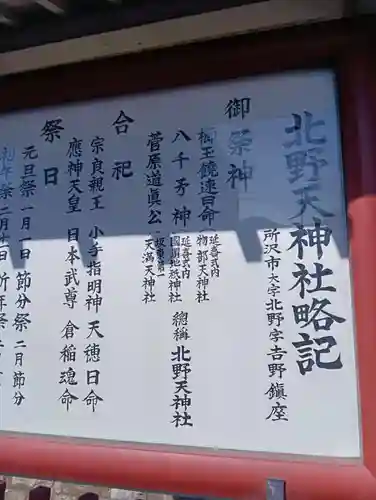 北野天神社略記
所沢市大字北野字吉野鎮座
御祭神
櫛玉饒速日命
延喜式内
物部天神社
八千矛神
延喜式内
国渭地祇神社
菅原道真公
坂東第一
天満天神社
總稱 北野天神社
合祀
宗良親王 小手指明神 天穂日命
應神天皇 日本武尊 倉稲魂命
祭日
元旦祭 一月一日 節分祭 二月節分